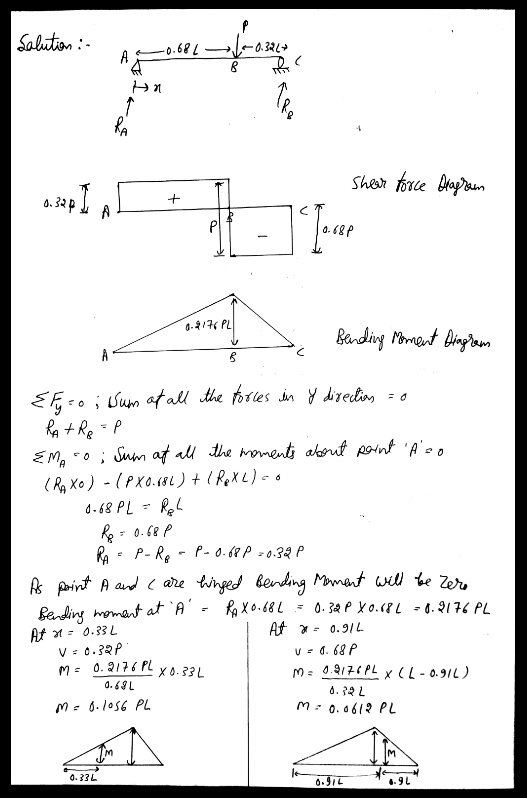 Solution :-
P
A 0.68L 0.32L C
B
x
R_A
R_B
Shear force Diagram
0.32P
A + B C
P
- 0.68P
0.2176 PL
Bending Moment Diagram
A B C
ΣF_y = 0 ; Sum of all the forces in Y direction = 0
R_A + R_B = P
ΣM_A = 0 ; Sum of all the moments about point 'A' = 0
(R_A X0) - (PX0.68L) + (R_B XL) = 0
0.68 PL = R_B L
R_B = 0.68 P
R_A = P - R_B = P - 0.68P = 0.32 P
As point A and C are hinged Bending Moment will be Zero
Bending moment at 'A' = R_A X0.68L = 0.32P X0.68L = 0.2176 PL
At x = 0.33L
V = 0.32P
M = 0.2176 PL / 0.68L X 0.33L
M = 0.1056 PL
M
0.33L
At x = 0.91L
V = 0.68P
M = 0.2176PL / 0.32L x (L - 0.91L)
M = 0.0612 PL
M
0.91L 0.9L